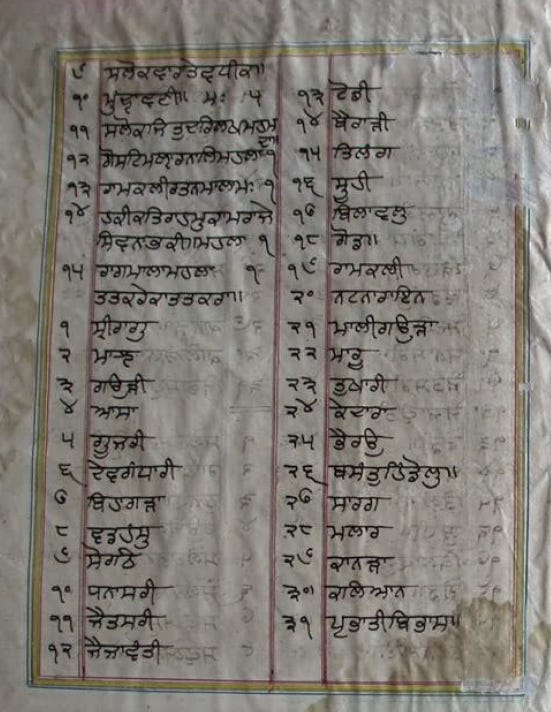 ੯ ਸਲੋਕਵਾਰਤੇਵਧੀਕ॥
੧੦ ਮੁੰਦਾਵਣੀ॥ ਮਃ ੫
੧੧ ਸਲੋਕ
੧੨ ਗੋਸਟਿਮਲਾਰਨਾਲਿਮਹਲਾ ੧
੧੩ ਰਾਮਕਲੀਰਤਨਮਾਲਾਮਃ ੧
੧੪ ਹਕੀਕਤਿਰਾਹਮੁਕਾਮਰਾਜੇ
ਸਿਵਨਾਭਕੀ॥ਮਹਲਾ ੧
੧੫ ਰਾਗਮਾਲਾਮਹਲਾ ੧
ਤਤਕਰੇਕਾਤਤਕਰਾ॥
੧ ਸ੍ਰੀਰਾਗੁ
੨ ਮਾਝ
੩ ਗਉੜੀ
੪ ਆਸਾ
੫ ਗੂਜਰੀ
੬ ਦੇਵਗੰਧਾਰੀ
੭ ਬਿਹਾਗੜਾ
੮ ਵਡਹੰਸੁ
੯ ਸੋਰਠਿ
੧੦ ਧਨਾਸਰੀ
੧੧ ਜੈਤਸਰੀ
੧੨ ਜੈਜਾਵੰਤੀ
੧੩ ਟੋਡੀ
੧੪ ਬੈਰਾੜੀ
੧੫ ਤਿਲੰਗ
੧੬ ਸੂਹੀ
੧੭ ਬਿਲਾਵਲੁ
੧੮ ਗੋਂਡ॥
੧੯ ਰਾਮਕਲੀ
੨੦ ਨਟਨਾਰਾਇਨ
੨੧ ਮਾਲੀਗਉੜਾ
੨੨ ਮਾਰੂ
੨੩ ਤੁਖਾਰੀ
੨੪ ਕੇਦਾਰਾ
੨੫ ਭੈਰਉ
੨੬ ਬਸੰਤੁਹਿੰਡੋਲੁ॥
੨੭ ਸਾਰਗ
੨੮ ਮਲਾਰ
੨੯ ਕਾਨੜਾ
੩੦ ਕਲਿਆਨ
੩੧ ਪ੍ਰਭਾਤੀਬਿਭਾਸ॥